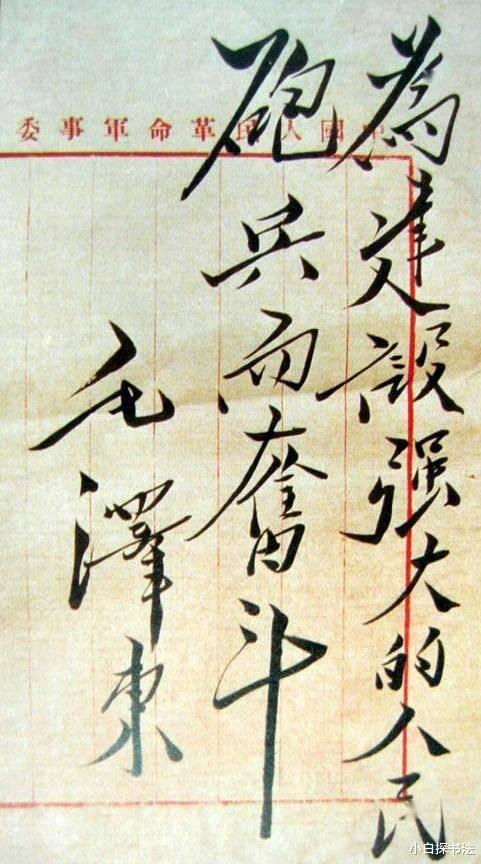 為建設强大的人民
砲兵而奮斗
毛澤東
中國人民革命軍事委
小白探书法